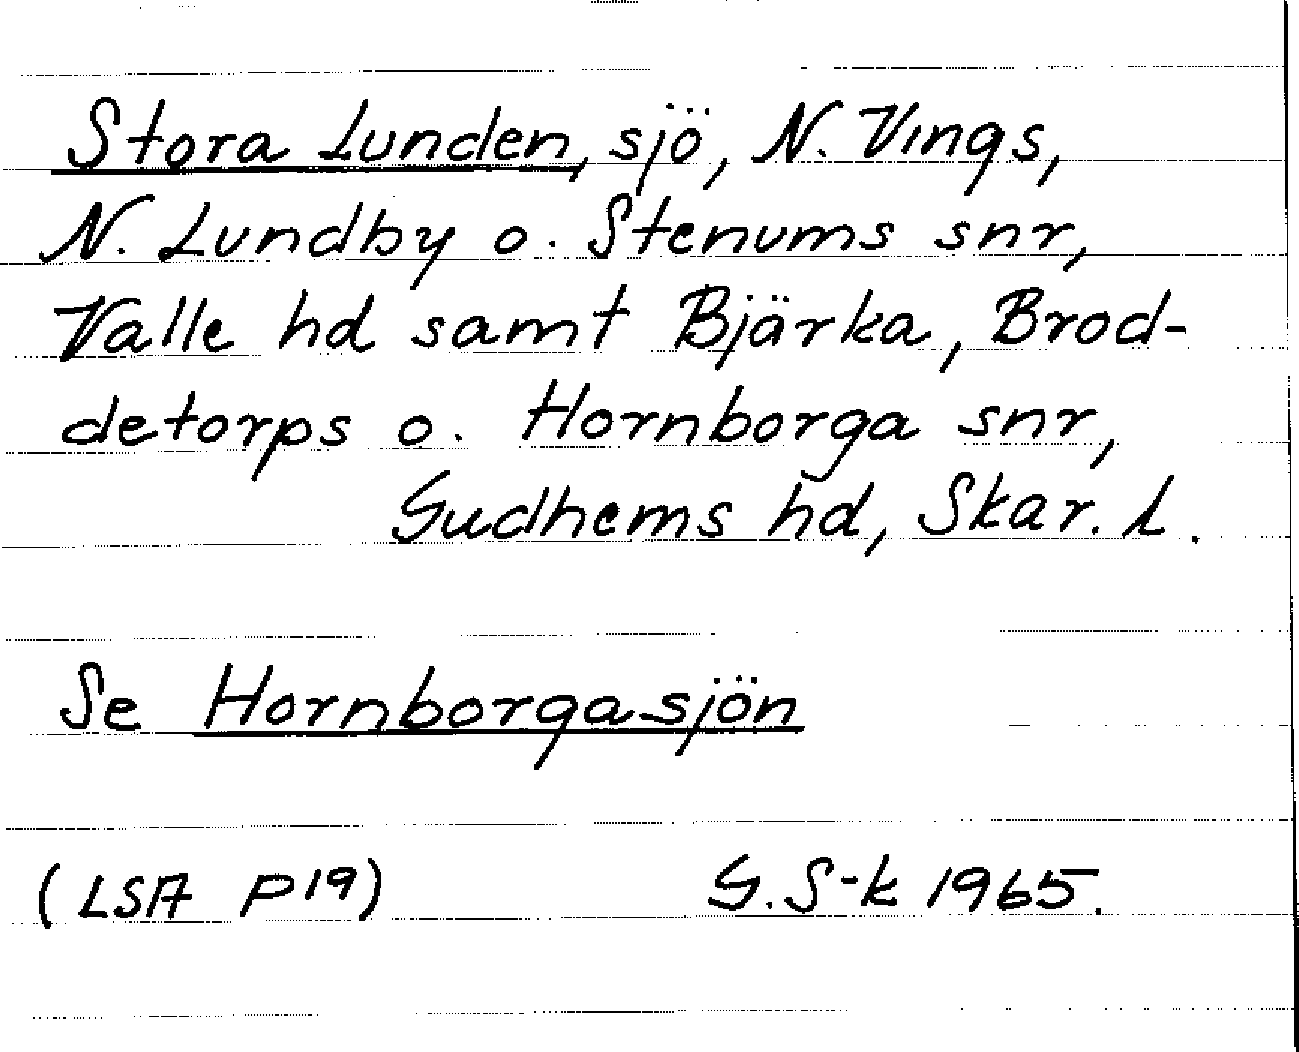 Stora Lunden, sjö, N. Vings,
N. Lundby o. Stenums snr,
Valle hd samt Bjärka, Brod-
detorps o. Hornborga snr,
Gudhems hd, Skar. l.
Se Hornborgasjön
(LSA P19) G. S-k 1965.